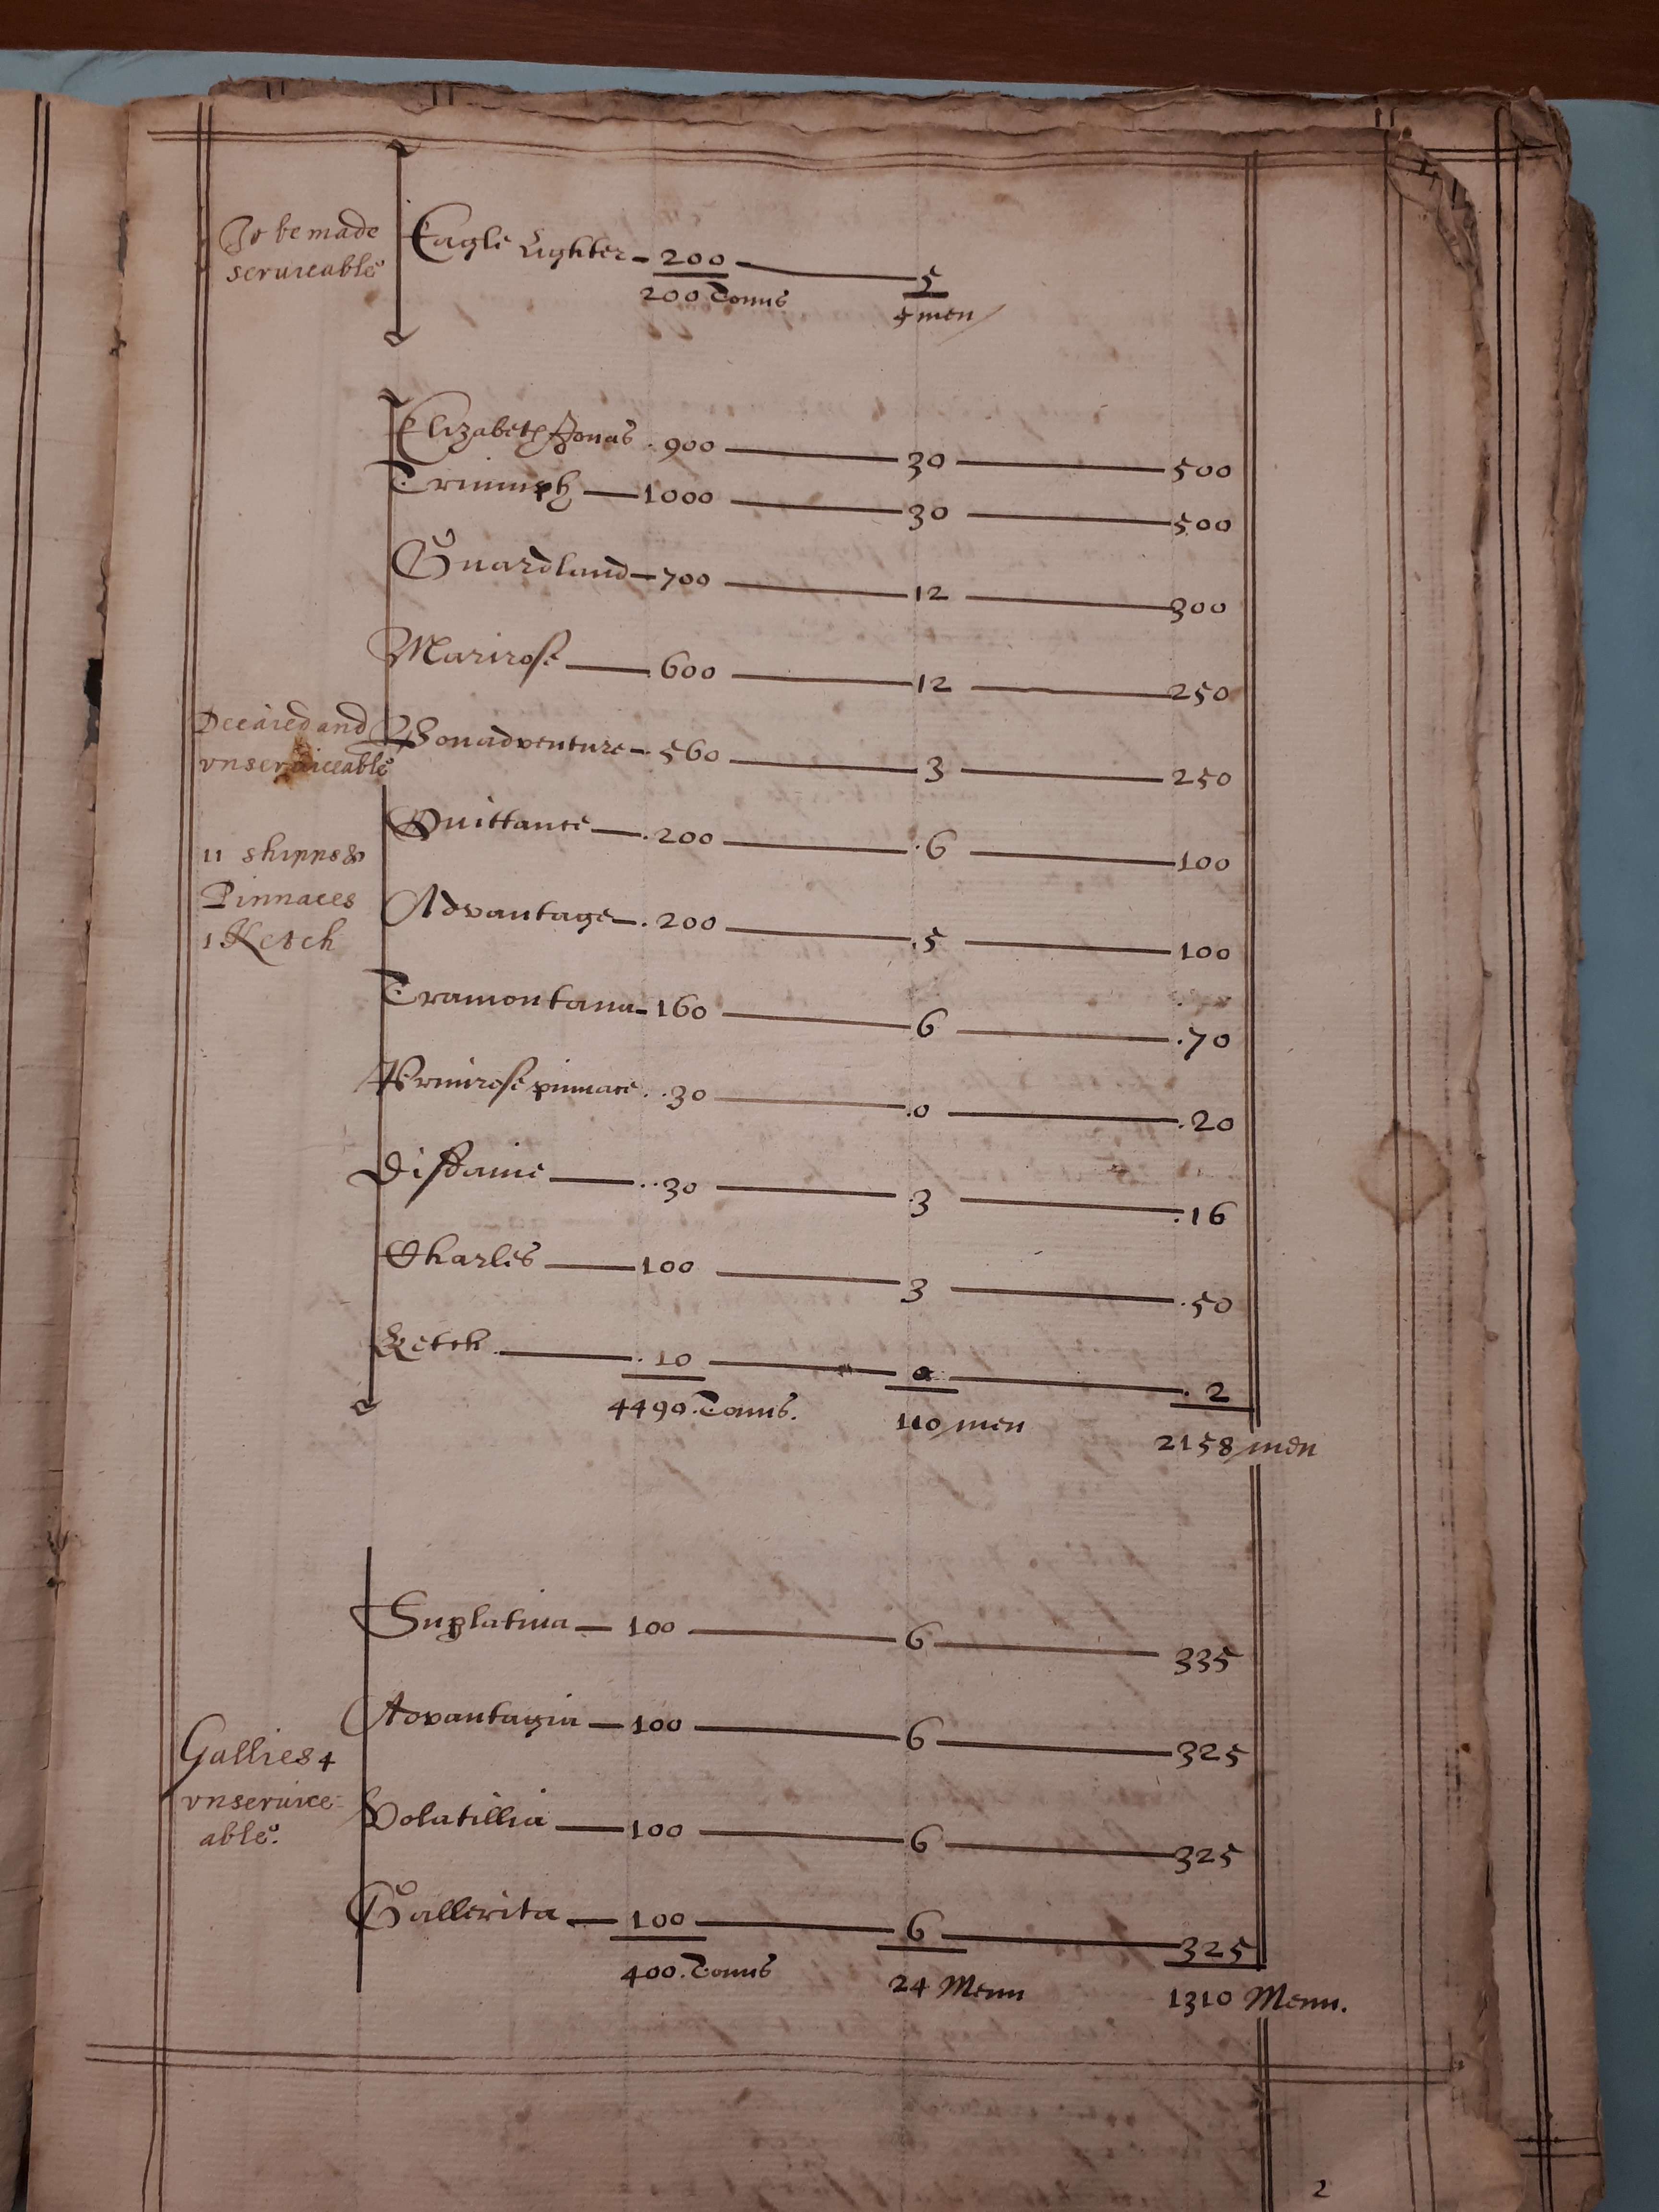 To be made
serviceable
Eagle Lighter - 200 - 5
200 Tonns 5 men
Elizabeth Jonas . 900 30 500
Triumph 1000 30 500
Guardland 700 12 300
Marirose 600 12 250
Decaied and
unserviceable
Bonadventure . 560 3 250
Quittance . 200 .6 100
11 shipps &
Pinnaces
1 Ketch
Advantage . 200 .5 100
Tramontana 160 6 .70
Primrose pinnace . . 30 .0 .20
Disdaine . . 30 3 .16
Charles 100 3 .50
Ketch . 10 0 . 2
4490. Tonns. 110 men 2158 men
Suplativa 100 6 335
Advantagia 100 6 325
Gallies 4
vnservice
able.
Volatillia 100 6 325
Gallerita 100 6 325
400. Tonns 24 Menn 1310 Menn.
2